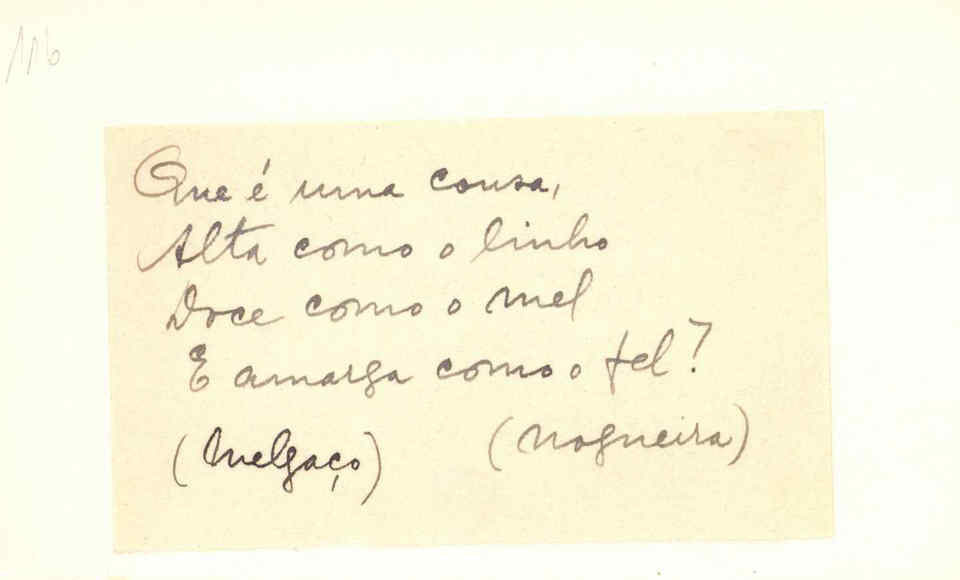 116
Que é uma cousa,
Alta como o linho
Doce como o mel
E amarga como o fel?
(Melgaço) (Nogueira)